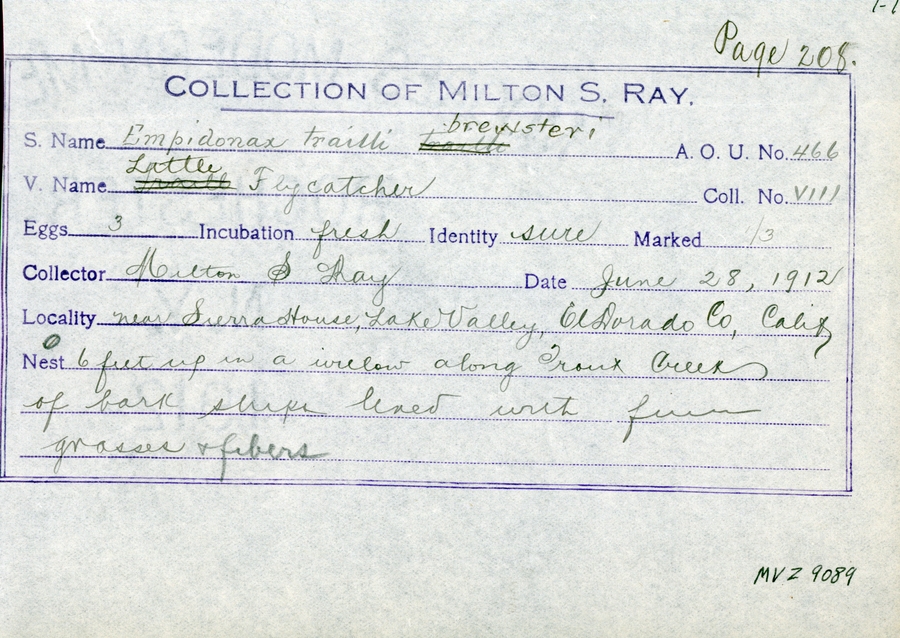 Page 208.
COLLECTION OF MILTON S. RAY.
brewsteri
S. Name Empidonax trailli trailli A. O. U. No. 466
Little
V. Name Traill Flycatcher Coll. No. VIII
Eggs 3 Incubation fresh Identity sure Marked 1/3
Collector Milton S Ray Date June 28, 1912
Locality near Sierra House, Lake Valley, El Dorado Co, Calif
Nest 6 feet up in a willow along Trout Creek
of bark strips lined with
grasses & fibers
MVZ 9089